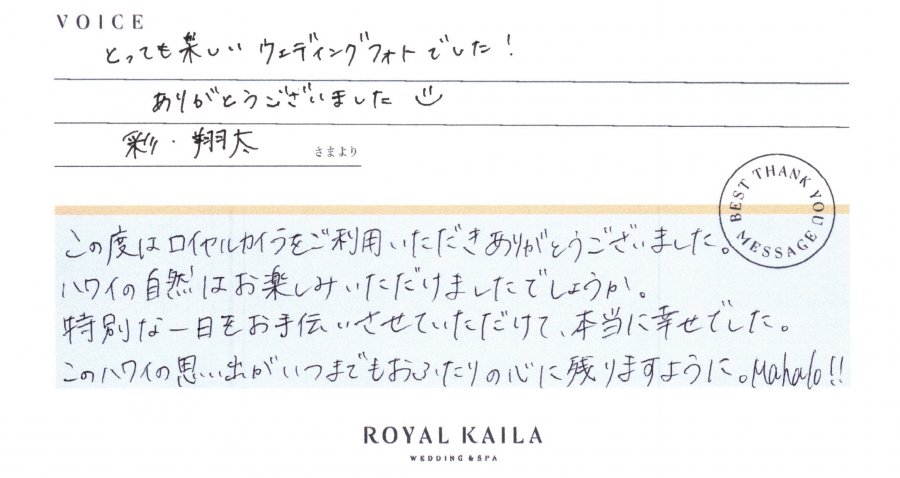 VOICE
とっても楽しい ウェディングフォトでした!
ありがとうございました
彩・翔太 さまより
BEST THANK YOU MESSAGE
この度はロイヤルカイラをご利用いただきありがとうございました。
ハワイの自然はお楽しみいただけましたでしょうか。
特別な一日をお手伝いさせていただけて、本当に幸せでした。
このハワイの思い出がいつまでもおふたりの心に残りますように。Mahalo!!
ROYAL KAILA
WEDDING & SPA